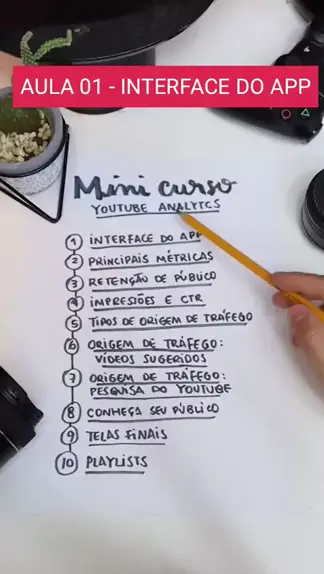 AULA 01 - INTERFACE DO APP
Mini curso
YOUTUBE ANALYTCS
1 INTERFACE DO APP
2 PRINCIPAIS MÉTRICAS
3 RETENÇÃO DE PÚBLICO
4 IMPRESSÕES E CTR
5 TIPOS DE ORIGEM DE TRÁFEGO
6 ORIGEM DE TRÁFEGO:
VÍDEOS SUGERIDOS
7 ORIGEM DE TRÁFEGO:
PESQUISA DO YOUTUBE
8 CONHEÇA SEU PÚBLICO
9 TELAS FINAIS
10 PLAYLISTS